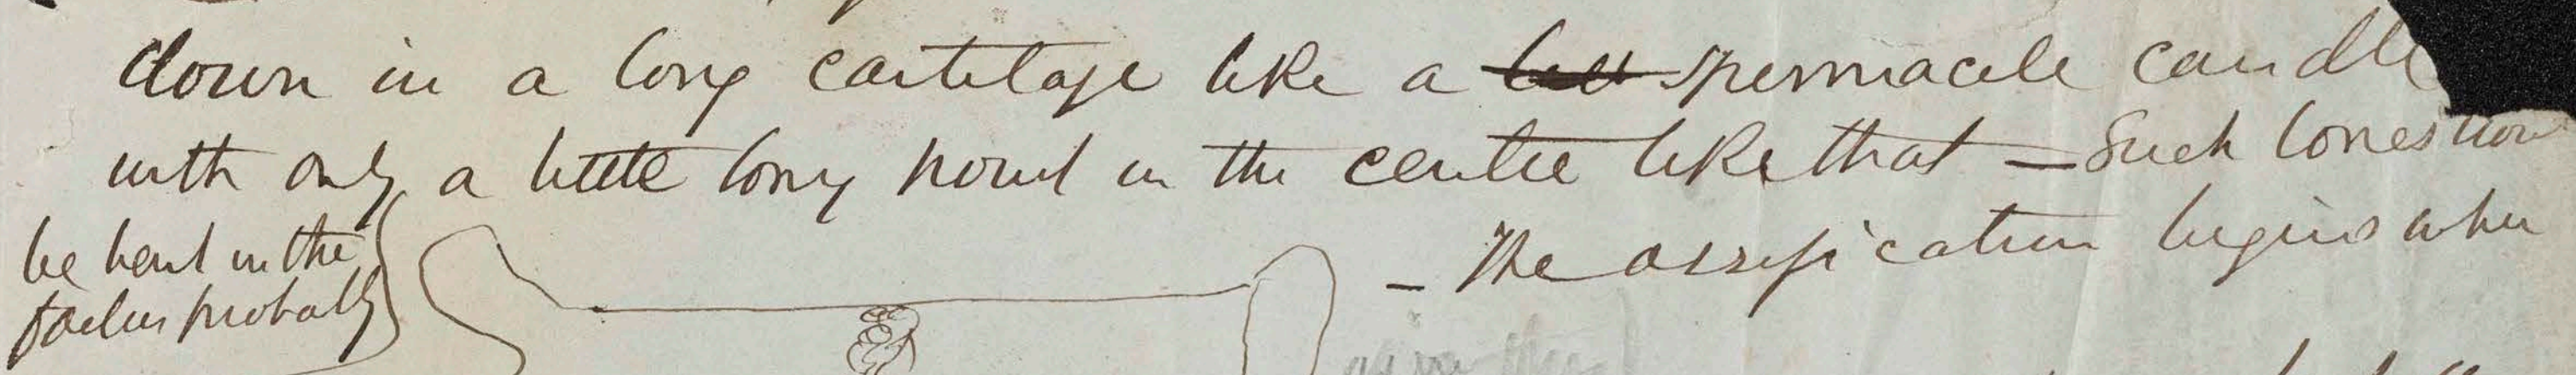 down in a long cartilage like a spermacele candle
with only a little bony point in the centre like that – Such bones
be bent in the
foetus probably
– The ossification begins when